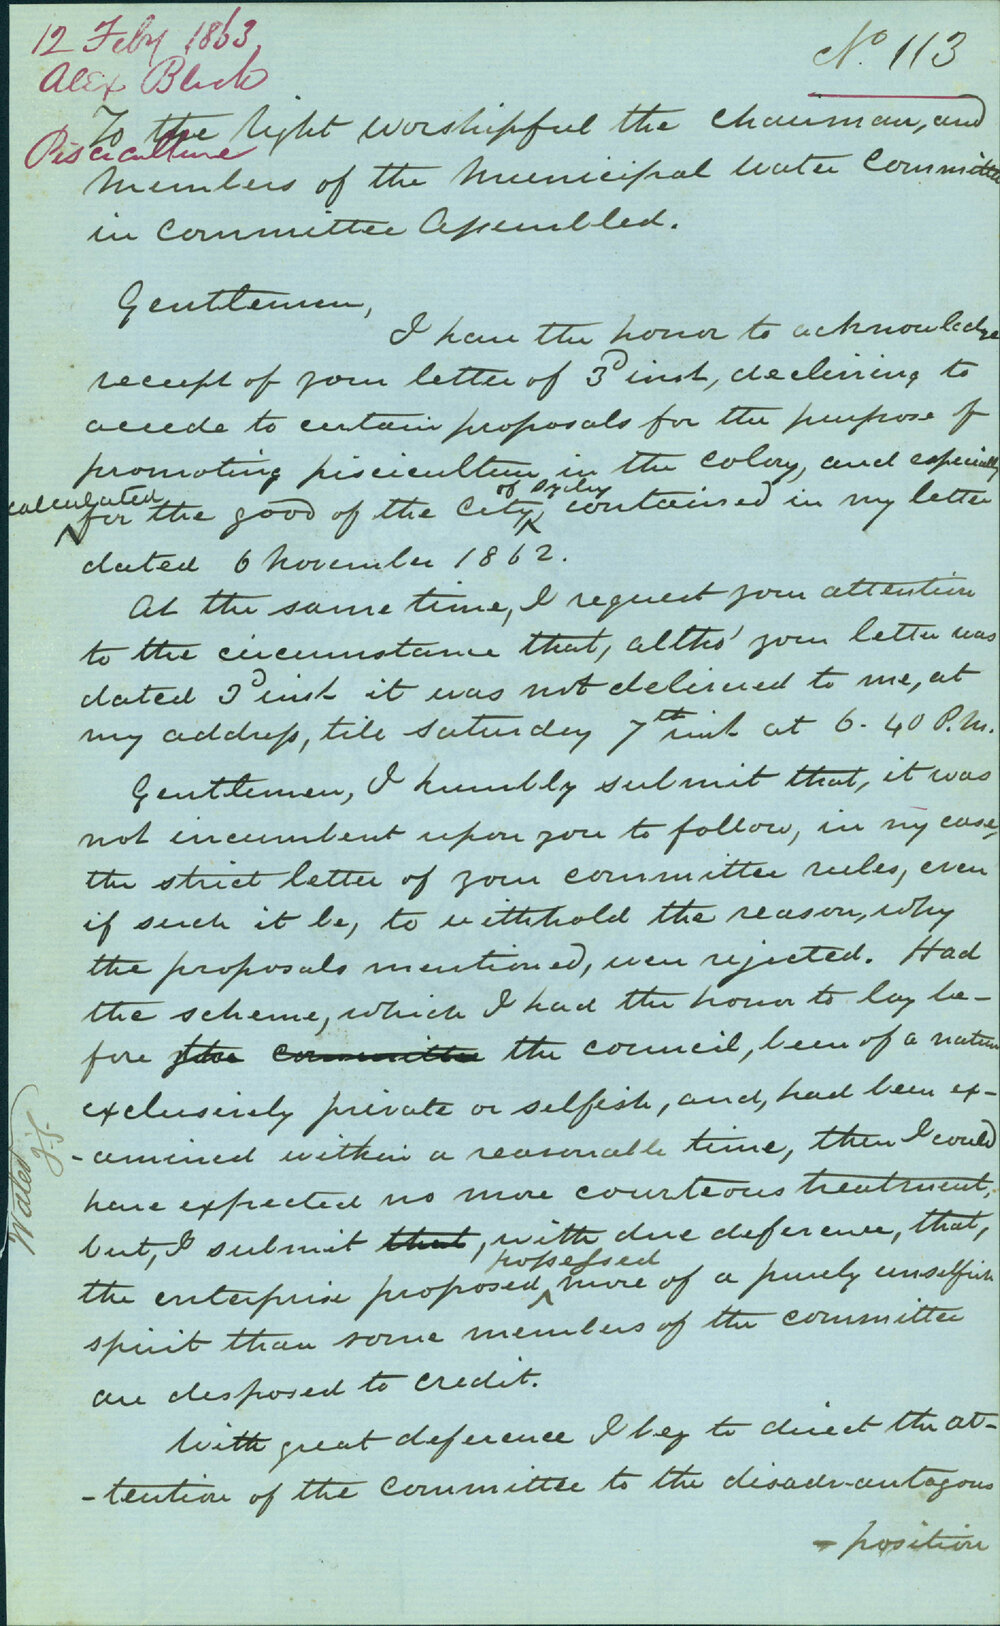 12 Feby 1863
Alex Black
Pisciculture
No. 113
To the right worshipful the chairman, and
members of the Municipal water Committee
in Committee Assembled.
Gentlemen,
I have the honor to acknowledge
receipt of your letter of 3d inst, declining to
accede to certain proposals for the purpose of
promoting pisciculture in the colony, and especially
calculated
for the good of the City of Sydney contained in my letter
dated 6 November 1862.
At the same time, I request your attention
to the circumstance that, altho' your letter was
dated 3d inst it was not delivered to me, at
my address, till Saturday 7th inst at 6-40 P.M.
Gentlemen, I humbly submit that, it was
not incumbent upon you to follow, in my case,
the strict letter of your committee rules, even
if such it be, to withhold the reason, why
the proposals mentioned, were rejected. Had
the scheme, which I had the honor to lay be-
fore the committee the council, been of a nature
exclusively private or selfish, and, had been ex-
-amined within a reasonable time, then I could
have expected no more courteous treatment,
but, I submit that, with due deference, that,
the enterprise proposed possessed more of a purely unselfish
spirit than some members of the committee
are disposed to credit.
With great deference I beg to direct the at-
-tention of the Committee to the disadvantagous
- position
Water